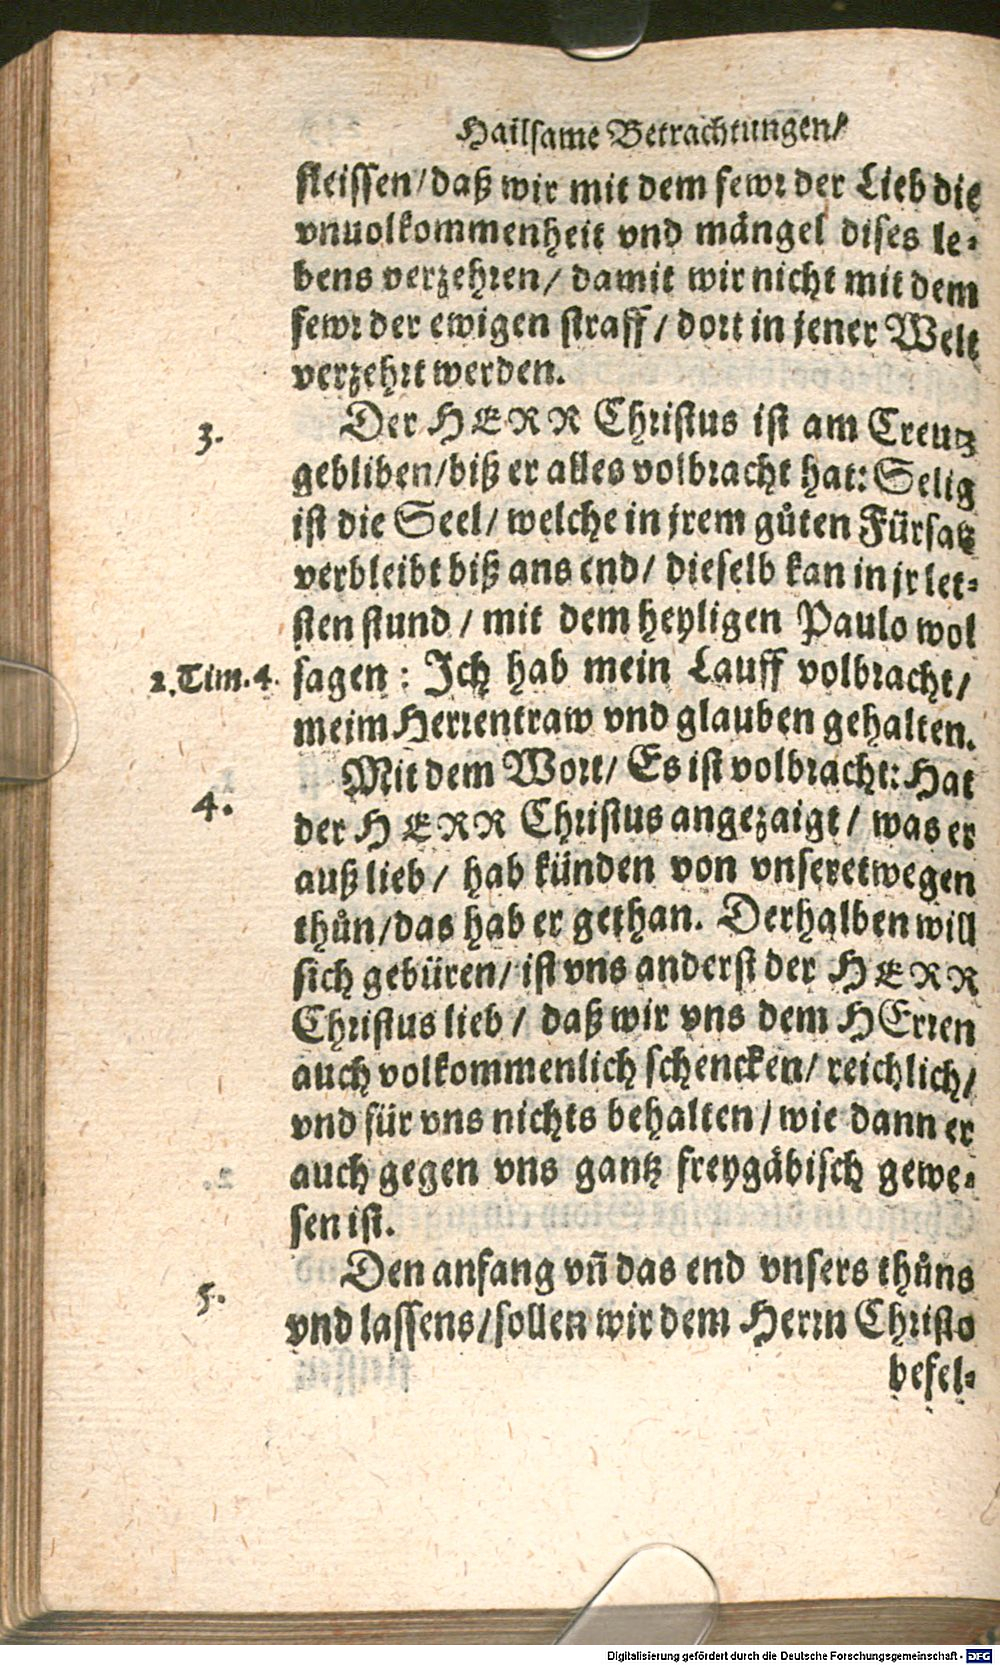 Hailsame Betrachtungen/
fleissen/daß wir mit dem fewr der Lieb die
vnuolkommenheit vnd mängel dises le-
bens verzehren/ damit wir nicht mit dem
fewr der ewigen straff/ dort in jener Welt
verzehrt werden.
3. Der HERR Christus ist am Creutz
gebliben/biß er alles volbracht hat: Selig
ist die Seel/ welche in jrem gůten Fürsatz
verbleibt biß ans end/ dieselb kan in jr let-
sten stund/ mit dem heyligen Paulo wol
2.Tim.4. sagen: Ich hab mein Lauff volbracht/
meim Herren traw vnd glauben gehalten.
Mit dem Wort/ Es ist volbracht: Hat
4. der HERR Christus angezaigt/ was er
auß lieb/ hab künden von vnseretwegen
thůn/das hab er gethan. Derhalben will
sich gebüren/ ist vns anderst der HERR
Christus lieb/ daß wir vns dem HErren
auch volkommenlich schencken/ reichlich/
vnd für vns nichts behalten/ wie dann er
auch gegen vns gantz freygäbisch gewe-
sen ist.
5. Den anfang vñ das end vnsers thůns
vnd lassens/sollen wir dem Herrn Christo
befel-
Digitalisierung gefördert durch die Deutsche Forschungsgemeinschaft - DFG